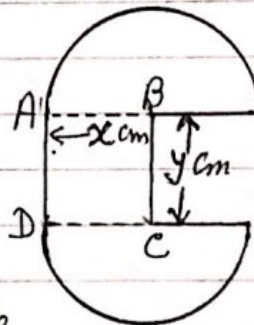 A B
x cm
y cm
D C